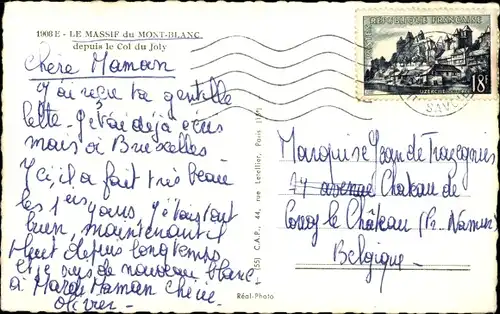 1908 E - LE MASSIF du MONT-BLANC
depuis le Col du Joly
Chère Maman
J'ai reçu ta gentille
lettre. Je t'ai déjà écris
mais à Bruxelles -
Ici, il a fait très beau
les 1ers jours, j'étais tout
bien, maintenant il
pleut depuis longtemps
Et je suis de nouveau blanc.
à Mardi Maman chérie
Olivier -
REPUBLIQUE FRANÇAISE
POSTES
18F
UZERCHE
SAVOIE
(55) C.A.P., 44, rue Letellier, Paris (15e)
Réal-Photo
Marquise Jean de Trazegnies
77 avenue Château de
Corroy le Château (Pr. Namur)
Belgique -